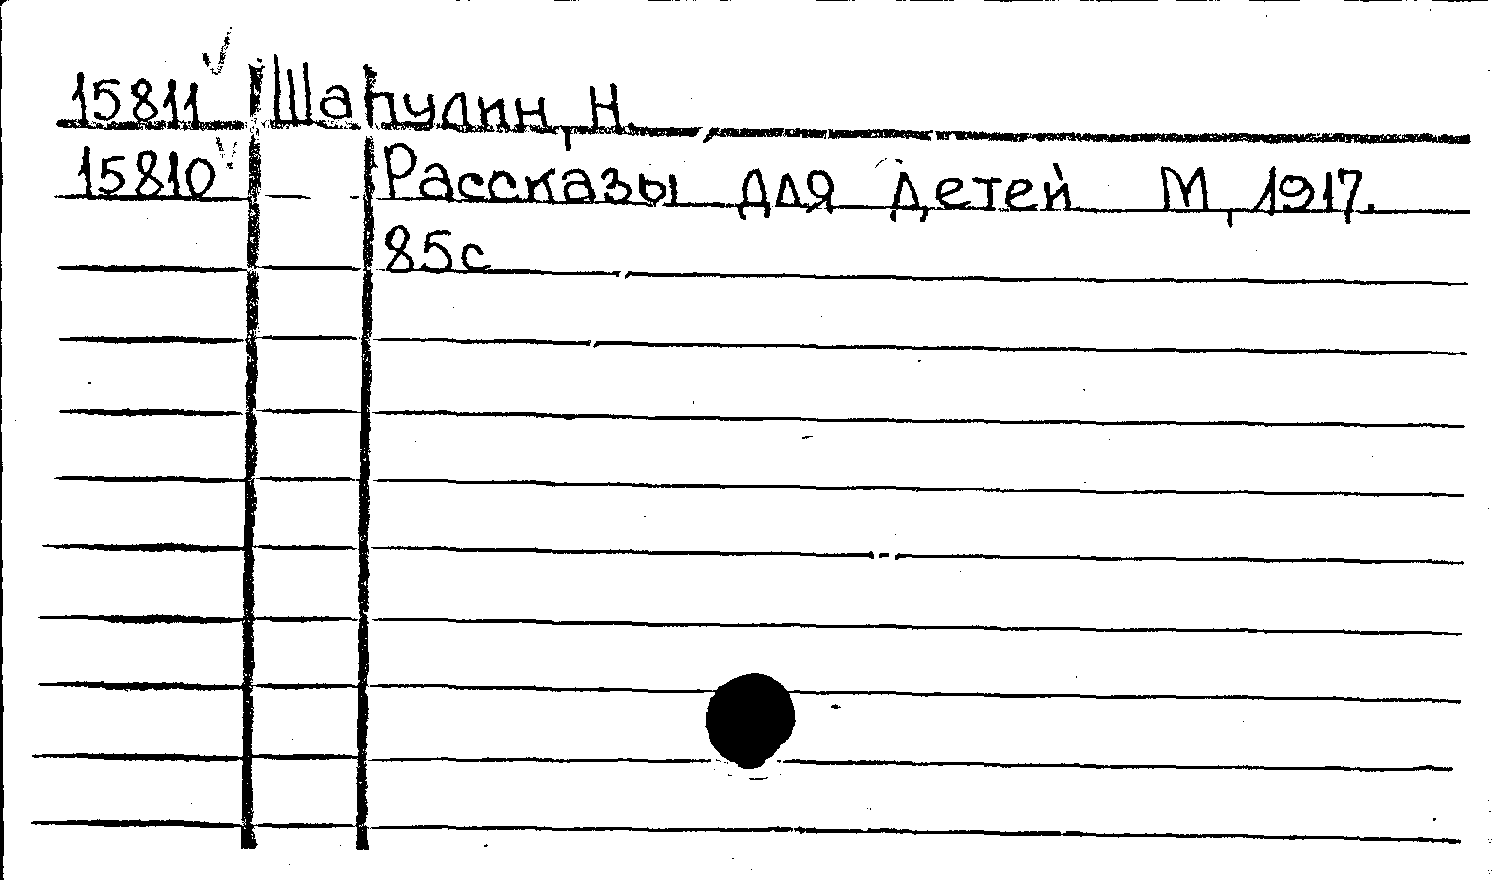 15811 Шапулин, Н.
15810 Рассказы для детей М, 1917.
85с